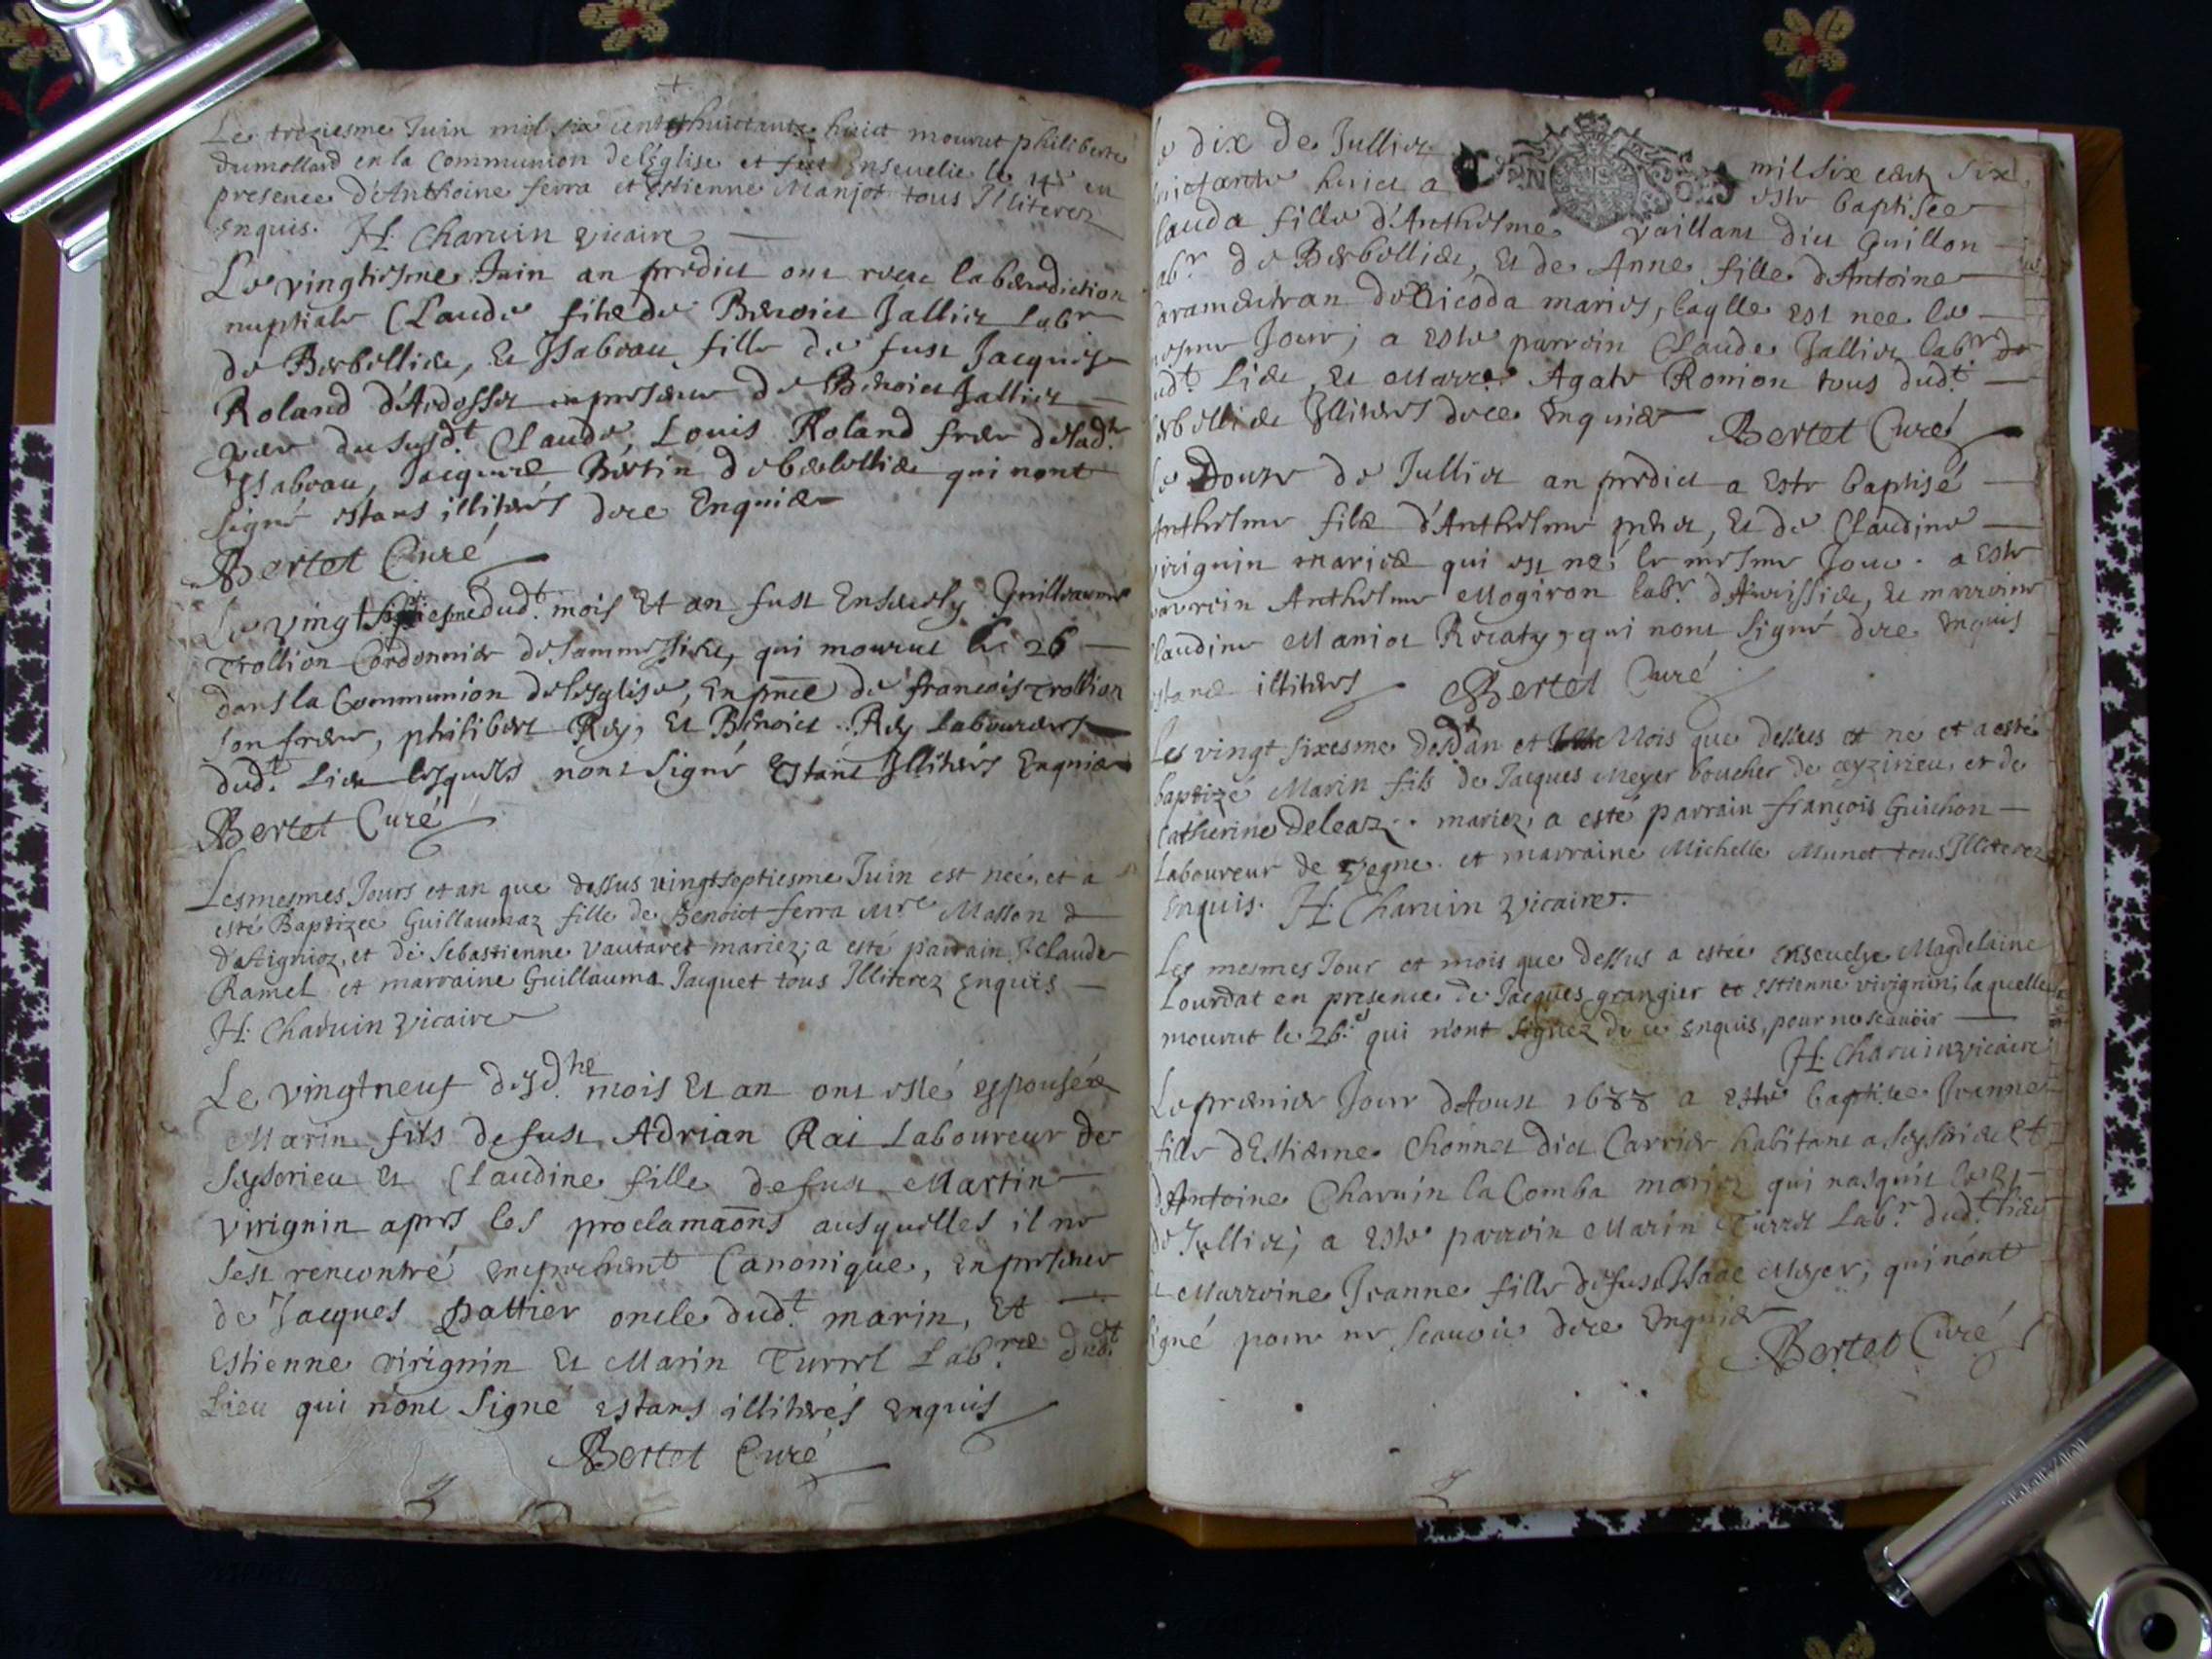 Le treziesme Juin mil six cent huictante huict mourut philiberte
dumollard en la Communion de l'Église et fut Ensevelie le 14e en
presence d'Anthoine ferra et Estienne Manjot tous Illiterez
Enquis. H. Charvin vicaire
Le vingtiesme Juin an predict ont receu la benediction
nuptiale Claude fils de Benoict Jallier Labr
de Berbellieu, et Isabeau fille de fust Jacques
Roland d'Ardosset en presence de Benoict Jallier
pere du susdt Claude, Louis Roland frere de ladte
Ysabeau, Jacques Bertin de berbellieu qui nont
signé estans illiterés de ce Enquis
Bertet Curé
Le vingt septiesme dudt mois Et an fust Ensevely Guillaume
Trollion Cordonnier de sammessieu, qui mourut le 26
dans la Communion de l'esglise, En pnce de francois Trollion
son frere, philibert Rey, Et Benoict Rey laboureurs
dudt Lieu lesquels nont signé Estant Illiterés Enquis
Bertet Curé
Les mesmes Jours et an que dessus vingt septiesme Juin est neé, et a
esté Baptizee Guillaumaz fille de Benoict ferra Mre Masson
d'Aignioz, et de Sebastienne Vautaret mariez; a esté parrain Claude
Ramel et marraine Guillauma Jacquet tous Illiterez Enquis
H. Charvin vicaire
Le vingtneuf desdhe mois Et an ont esté espousés
Marin fils de fust Adrian Rai Laboureur de
Seyserieu Et Claudine fille de fust Martin
Virignin apres les proclamaons ausquelles il ne
sest rencontré empechent Canonique, En presence
de Jacques pattier oncle dudt marin, Et
Estienne virignin Et Marin Turrel Labrs dudt
Lieu qui nont Signé estans illiterés enquis
Bertet Curé
dix de Jullier mil six cent six
huict a este baptisée
fille d'Anthelme vaillant dict Guillon
de Berbellieu, Et de Anne fille d'Antoine
mariés, laqlle est nee le
Jour; a este parrein Claude Jallier labr de
Lieu, Et Marre Agate Ronion tous dudt
Illiterés de ce Enquis Bertet Curé
Douze de Jullier an predict a Este baptisé
Anthelme fils d'Anthelme, Et de Claudine
virignin mariés qui est né le mesme Jour. a Este
parrein Anthelme Mogiron labr d'Avrissieu, Et marreine
Claudine Manjot, qui nont signé de ce enquis
illiterés Bertet Curé
Les vingt sixesme desdt an et Mois que dessus et né et a esté
baptizé Marin fils de Jacques Meyer boucher de ceyzirieu, et de
Catherine deleaz mariez, a esté parrain françois Guichon
Laboureur de vogne. et marraine Michelle Munet tous Illiterez
Enquis. H. Charvin vicaire.
Les mesmes Jour et mois que dessus a estée Ensevelye Magdelaine
Lourdat en presence de Jacques grangier et Estienne virignin; laquelle
mourut le 26e qui n'ont signez de ce Enquis, pour ne scavoir
H. Charvin vicaire
Le premier Jour d'Aoust 1688 a esté baptisee Jeanne
fille d'Estienne Chonnet dict Carrier habitant a Seyserieu Et
d'Antoine Charvin la Comba mariez qui nasquit le 31
de Jullier; a este parrein Marin Turrel Labr dudt lieu
Marreine Jeanne fille de fust Isaac Meyer, qui n'ont
signé pour ne scavoir de ce Enquis
Bertet Curé